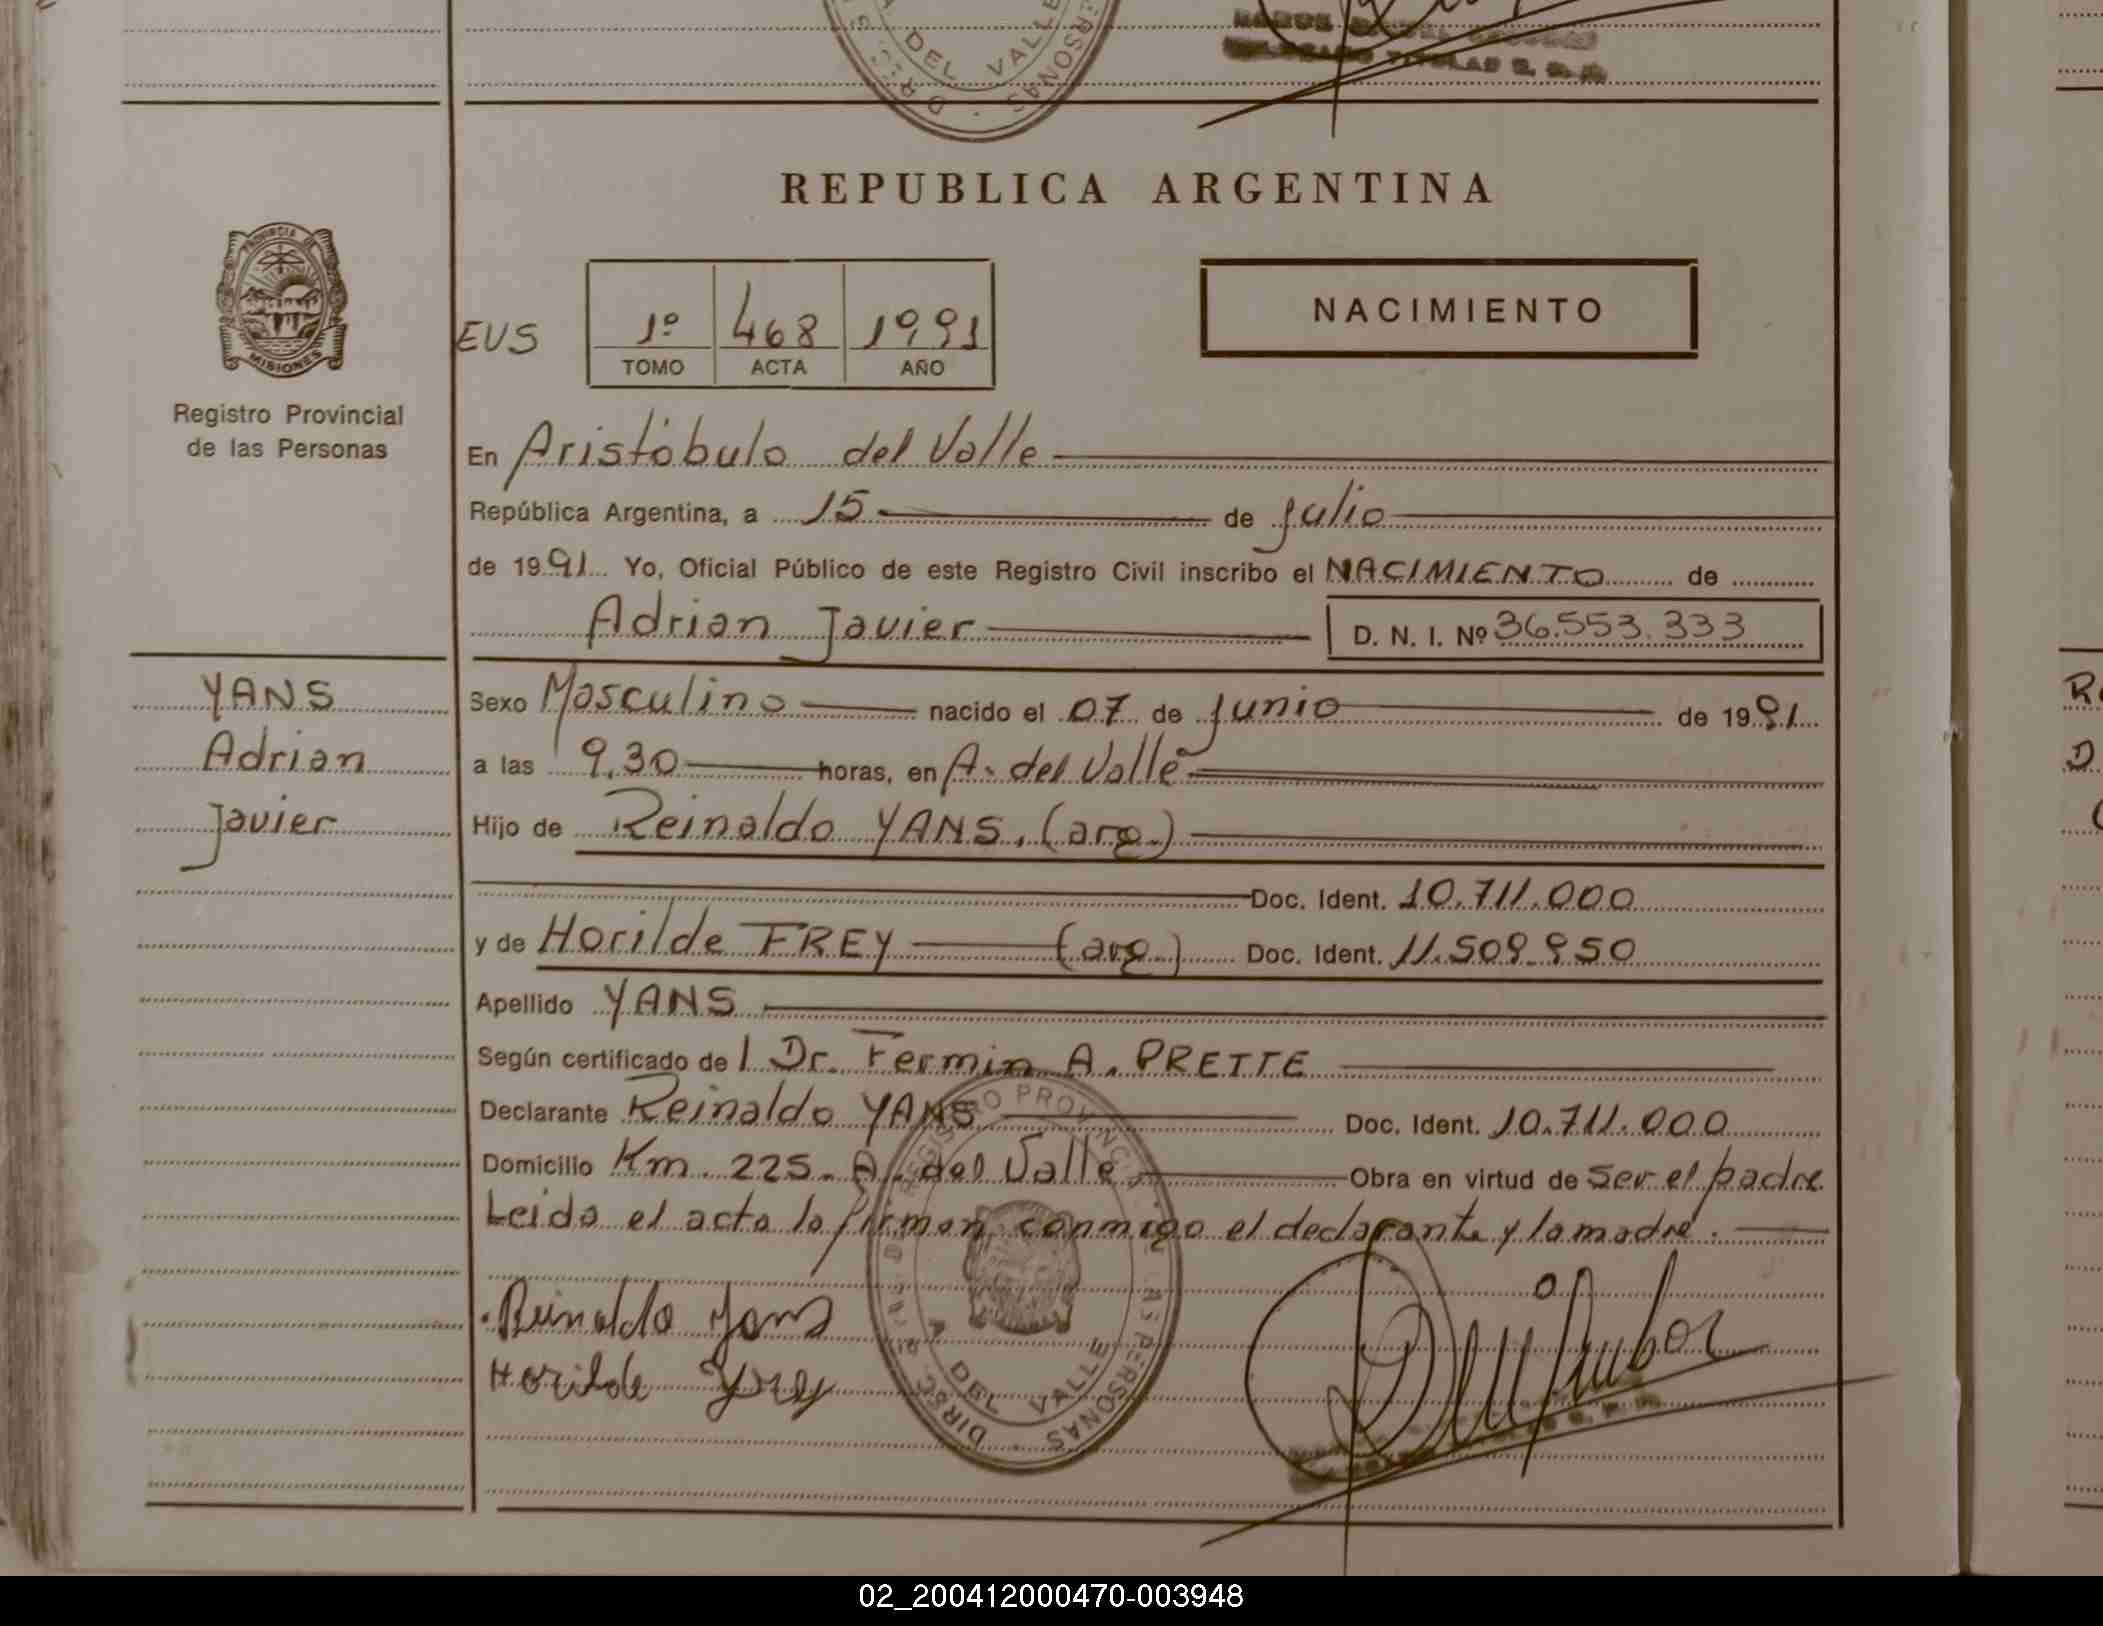 DEL VALLE
DIRSC.
PERSONAS
TITULAR
REPUBLICA ARGENTINA
PROVINCIA DE
MISIONES
Registro Provincial
de las Personas
EUS
1º 468 1991
TOMO ACTA AÑO
NACIMIENTO
En Aristóbulo del Valle
República Argentina, a 15 de Julio
de 1991 Yo, Oficial Público de este Registro Civil inscribo el NACIMIENTO de
Adrian Javier D. N. I. Nº 36.553.333
YANS
Adrian
Javier
Sexo Masculino nacido el 07 de Junio de 1991
a las 9,30 horas, en A. del Valle
Hijo de Reinaldo YANS, (arg.)
Doc. Ident. 10.711.000
y de Horilde FREY (arg.) Doc. Ident. 11.509.950
Apellido YANS
Según certificado de l Dr. Fermin A. PRETTE
Declarante Reinaldo YANS Doc. Ident. 10.711.000
Domicilio Km. 225. A. del Valle Obra en virtud de Ser el padre
Leida el acta la firman conmigo el declarante y la madre.
Reinaldo Yans
Horilde Frey
REGISTRO PROVINCIAL
LAS PERSONAS
A. DEL VALLE
DIRSC.
02_200412000470-003948